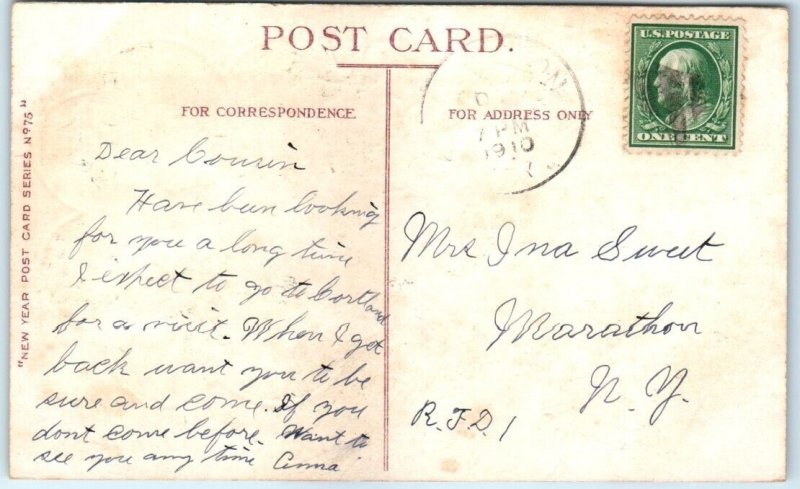 POST CARD.
U.S. POSTAGE
ONE CENT
7 PM
1910
FOR CORRESPONDENCE
FOR ADDRESS ONLY
"NEW YEAR POST CARD SERIES Nº 75"
Dear Cousin
Have been looking
for you a long time
I expect to go to Cortland
for a visit. When I get
back want you to be
sure and come. If you
dont come before. Want to
see you any time Anna
Mrs Ina Sweet
Marathon
N.Y.
R.F.D. 1